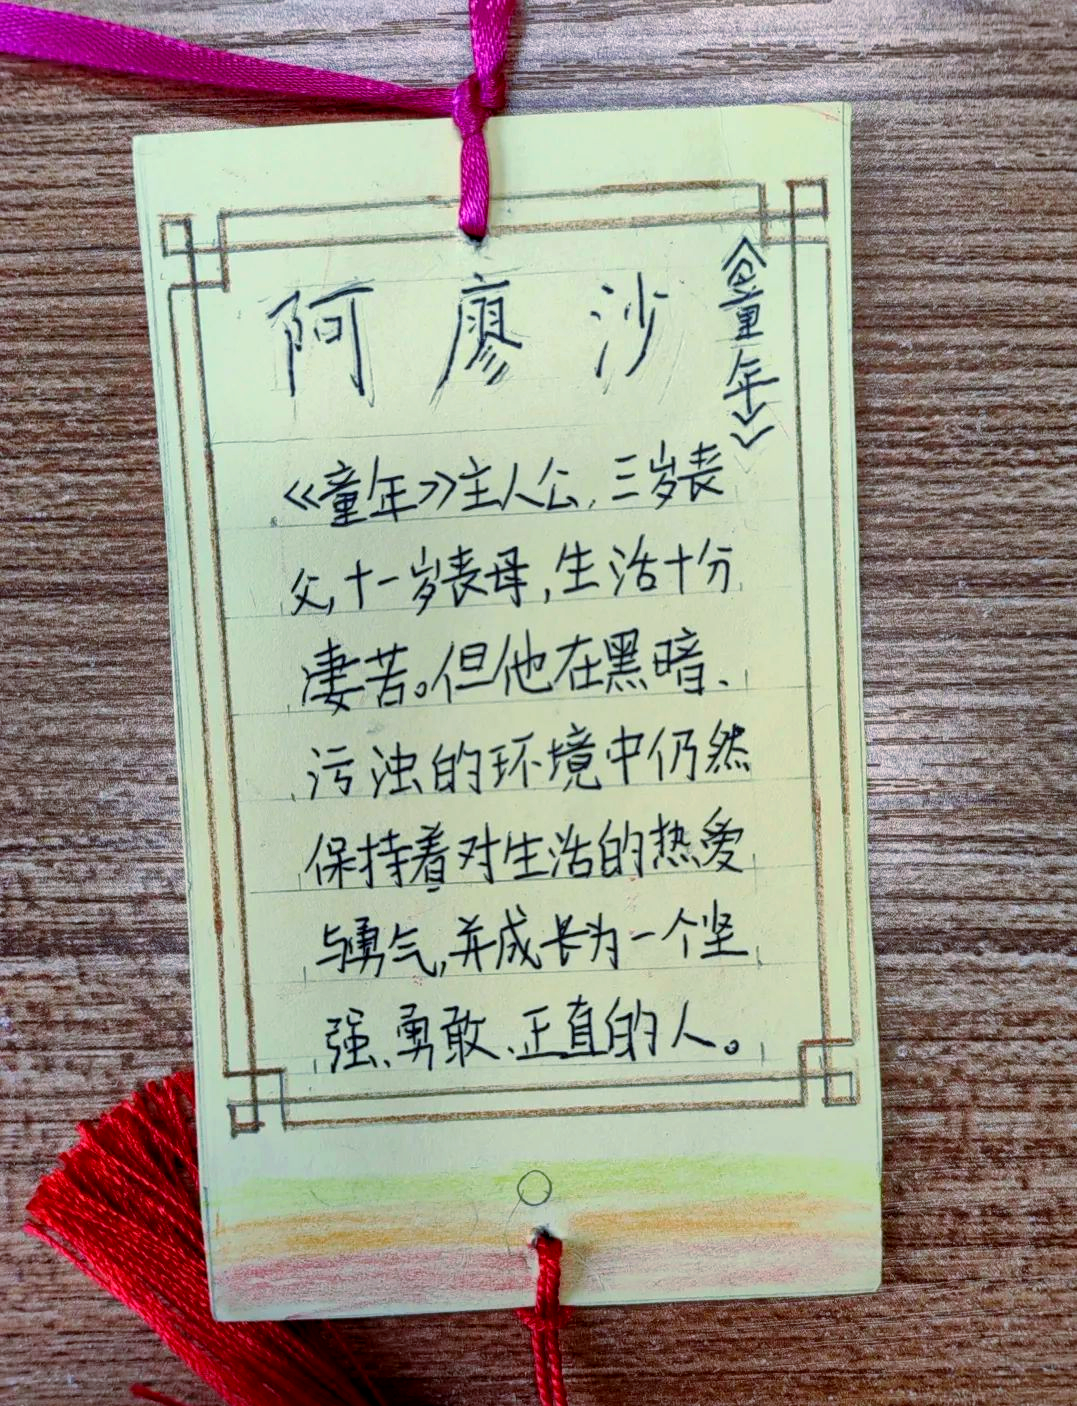 阿廖沙
《童年》
《童年》主人公,三岁表
父,十一岁表母,生活十分
凄苦。但他在黑暗、
污浊的环境中仍然
保持着对生活的热爱
与勇气,并成长为一个坚
强、勇敢、正直的人。